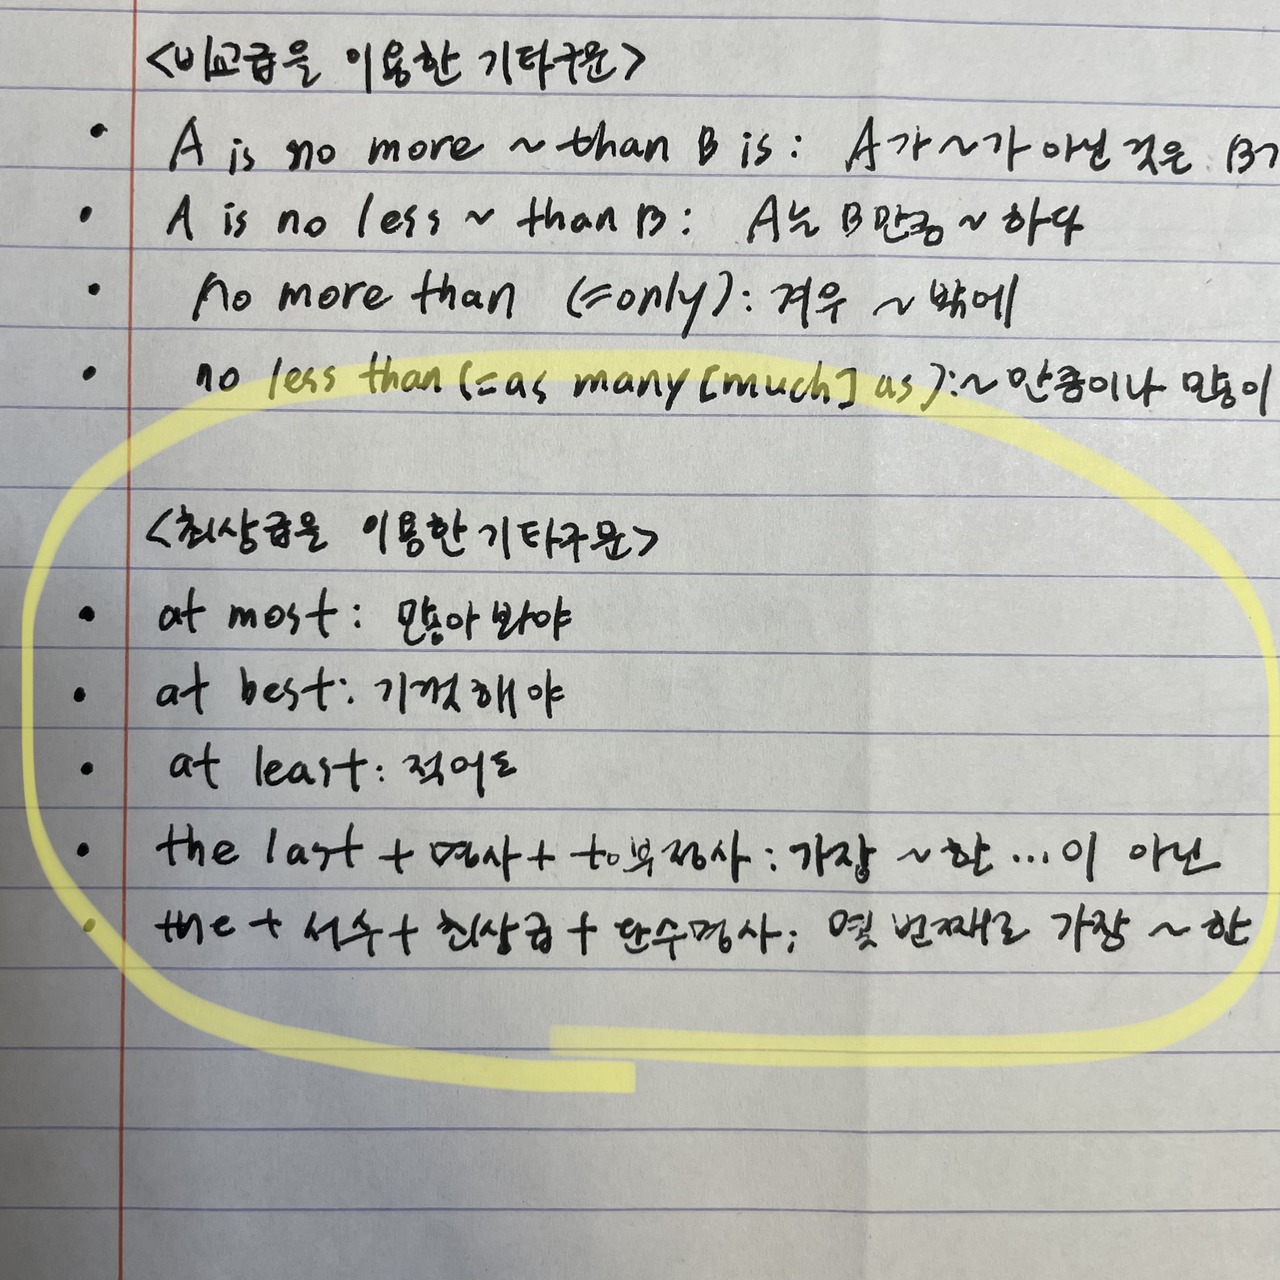 <비교급을 이용한 기타구문>
• A is no more ~ than B is: A가 ~가 아닌 것은 B가
• A is no less ~ than B: A는 B만큼 ~하다
• no more than (=only): 겨우 ~밖에
• no less than (=as many [much] as): ~만큼이나 많이
<최상급을 이용한 기타구문>
• at most: 많아봐야
• at best: 기껏해야
• at least: 적어도
• the last + 명사 + to부정사: 가장 ~한 ...이 아닌
• the + 서수 + 최상급 + 단수명사: 몇 번째로 가장 ~한